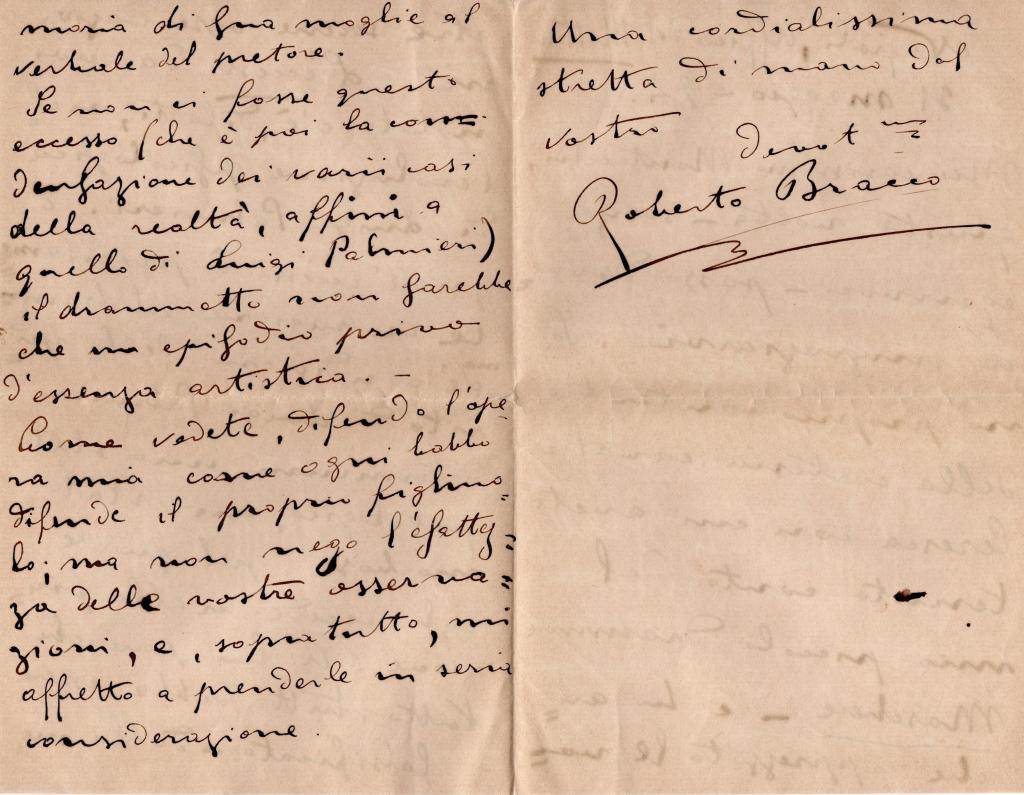 moria di sua moglie al
verbale del pretore.
Se non ci fosse questo
eccesso (che è poi la con-
densazione dei varii casi
della realtà, affini a
quello di Luigi Palmieri)
il drammetto non sarebbe
che un episodio privo
d'essenza artistica. —
Come vedete, difendo l'ope
ra mia come ogni babbo
difende il proprio figliuo=
lo; ma non nego l'esattez=
za delle vostre osserva=
zioni, e, sopratutto, mi
affretto a prenderle in seria
considerazione.
Una cordialissima
stretta di mano dal
vostro
devot mo
Roberto Bracco